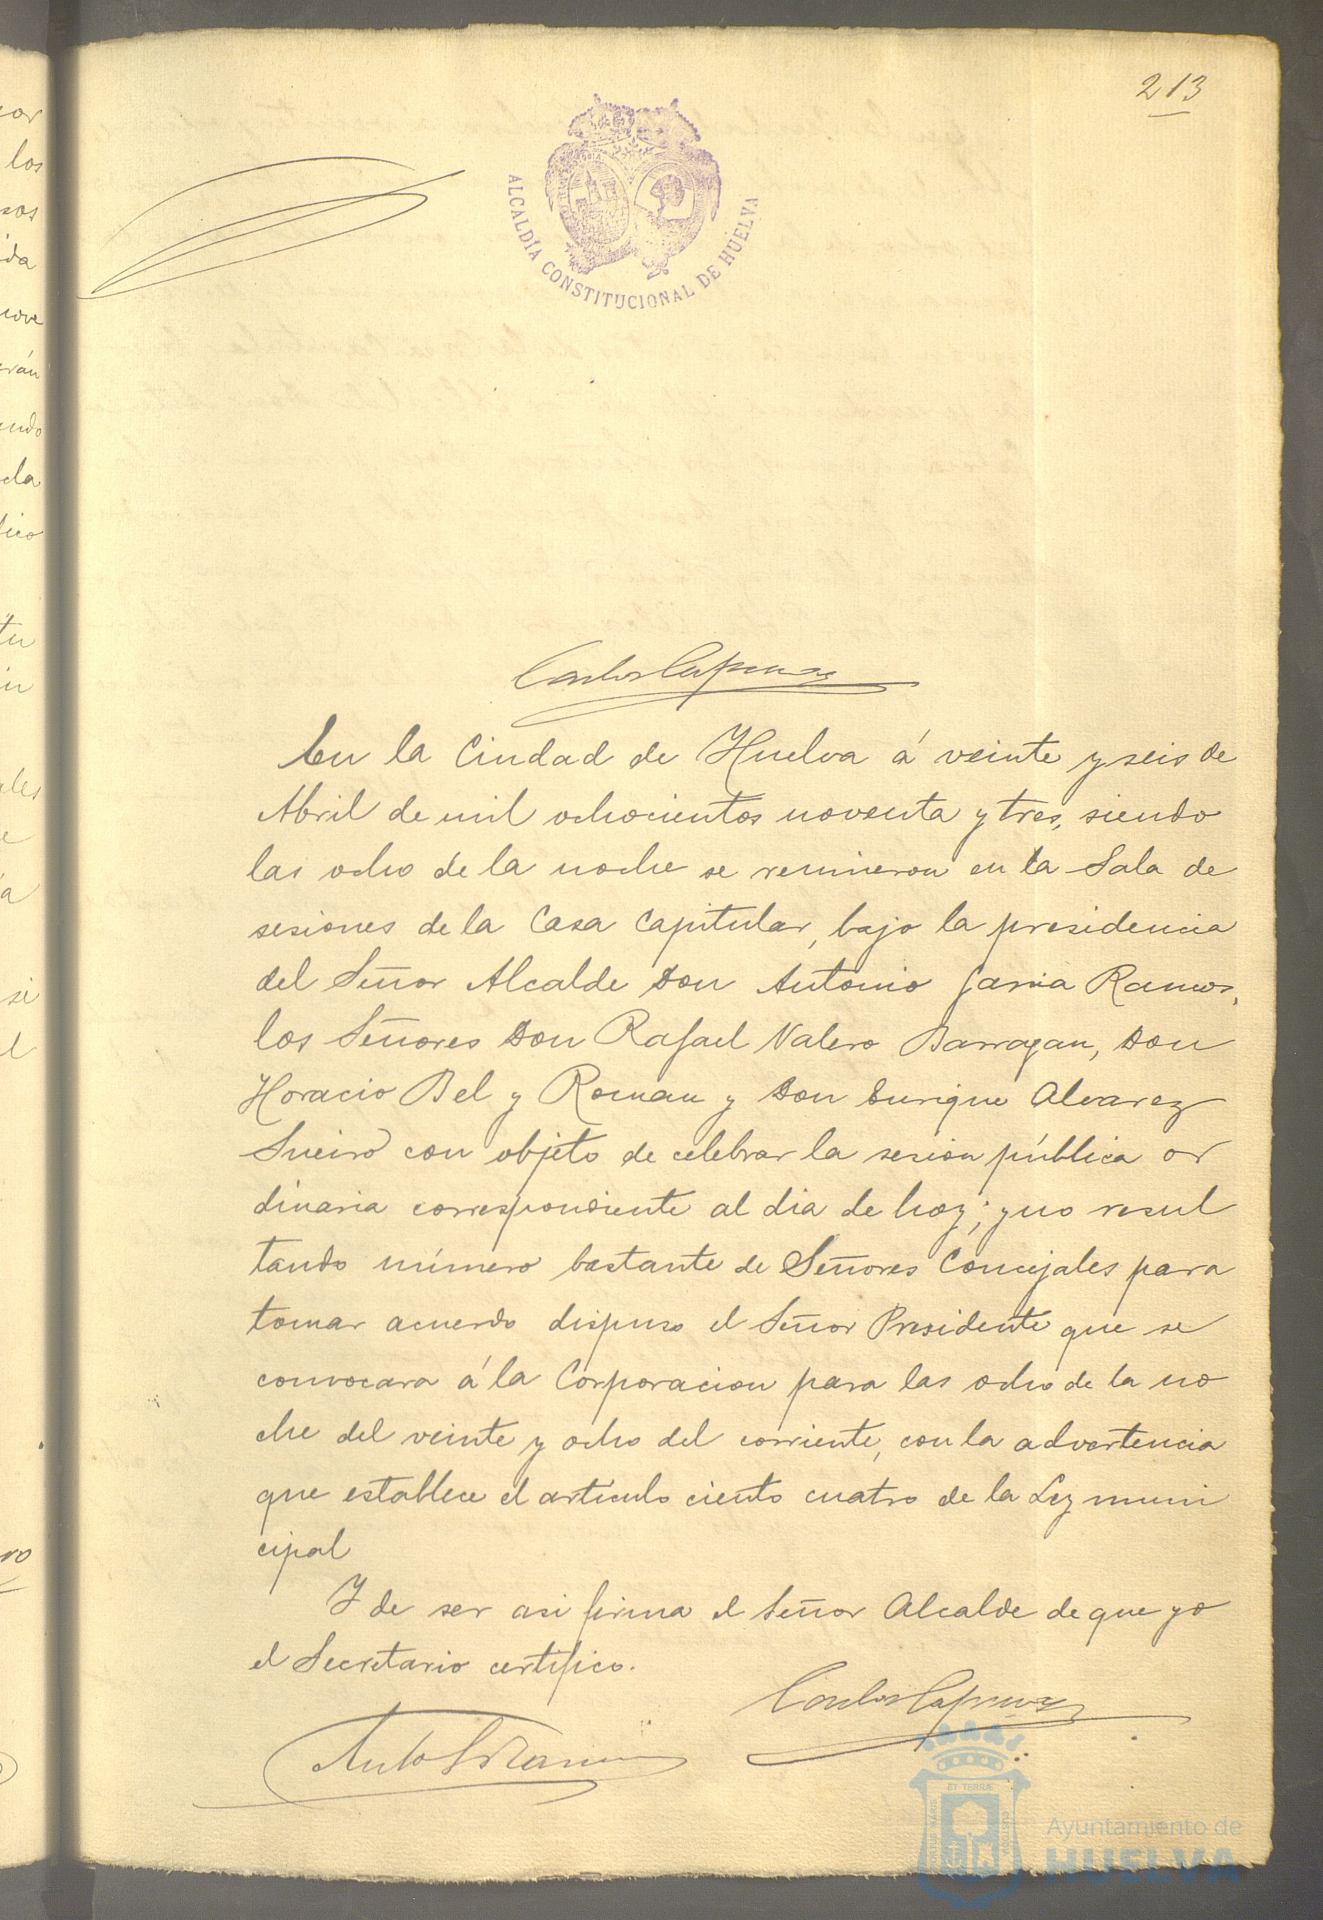 213
ALCALDÍA CONSTITUCIONAL DE HUELVA
Carlos
En la Ciudad de Huelva á veinte y seis de
Abril de mil ochocientos noventa y tres, siendo
las ocho de la noche se reunieron en la Sala de
sesiones de la Casa Capitular, bajo la presidencia
del Señor Alcalde Don Antonio Garcia Ramos,
los Señores Don Rafael Valero Barragan, Don
Horacio Bel y Roman y Don Enrique Alvarez
Sueiro con objeto de celebrar la sesion pública or
dinaria correspondiente al dia de hoy; y no resul
tando número bastante de Señores Concejales para
tomar acuerdo dispuso el Señor Presidente que se
convocara á la Corporacion para las ocho de la no
che del veinte y ocho del corriente, con la advertencia
que establece el artículo ciento cuatro de la Ley muni
cipal
Y de ser asi firma el Señor Alcalde de que yo
el Secretario certifico.
Carlos
Anto G Ramos
Ayuntamiento de
HUELVA